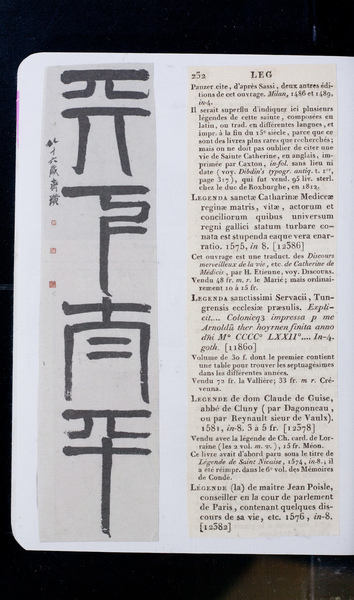 天下太平
252 LEG
Panzer cite, d'après Sassi, deux autres édi-
tions de cet ouvrage. Milan, 1486 et 1489,
in-4.
Il serait superflu d'indiquer ici plusieurs
légendes de cette sainte, composées en
latin, ou trad. en différentes langues, et
impr. à la fin du 15e siècle, parce que ce
sont des livres plus rares que recherchés;
mais on ne doit pas oublier de citer une
vie de Sainte Catherine, en anglais, im-
primée par Caxton, in-fol. sans lieu ni
date (voy. Dibdin's typogr. antiq. t. 1er,
page 317), qui fut vend. 95 liv. sterl.
chez le duc de Roxburghe, en 1812.
LEGENDA sanctæ Catharinæ Mediceæ
reginæ matris, vitæ, actorum et
conciliorum quibus universum
regni gallici statum turbare co-
nata est stupenda eaque vera enar-
ratio. 1575, in 8. [12386]
Cet ouvrage est une traduct. des Discours
merveilleux de la vie, etc. de Catherine de
Médicis, par H. Etienne, voy. DISCOURS.
Vendu 48 fr. m. r. le Marié; mais ordinai-
rement 10 à 15 fr.
LEGENDA sanctissimi Servacii, Tun-
grensis ecclesiæ præsulis, Expli-
cit.... Colonieqз impressa p me
Arnoldū ther hoyrnen finita anno
dñi Mº CCCCº LXXIIº.... In-4.
goth. [11860]
Volume de 30 f. dont le premier contient
une table pour trouver les septuagésimes
dans les différentes années.
Vendu 72 fr. la Vallière; 33 fr. m r. Cré-
venna.
LEGENDE de dom Claude de Guise,
abbé de Cluny (par Dagonneau,
ou par Reynault sieur de Vaulx).
1581, in-8. 3 à 5 fr. [12378]
Vendu avec la légende de Ch. card. de Lor-
raine (les 2 vol. m. v.), 15 fr. Méon.
Ce livre avait d'abord paru sous le titre de
Légende de Saint Nicaise, 1574, in-8., il
a été réimpr. dans le 6e vol. des Mémoires
de Condé.
LÉGENDE (la) de maître Jean Poisle,
conseiller en la cour de parlement
de Paris, contenant quelques dis-
cours de sa vie, etc. 1576, in-8.
[12382]